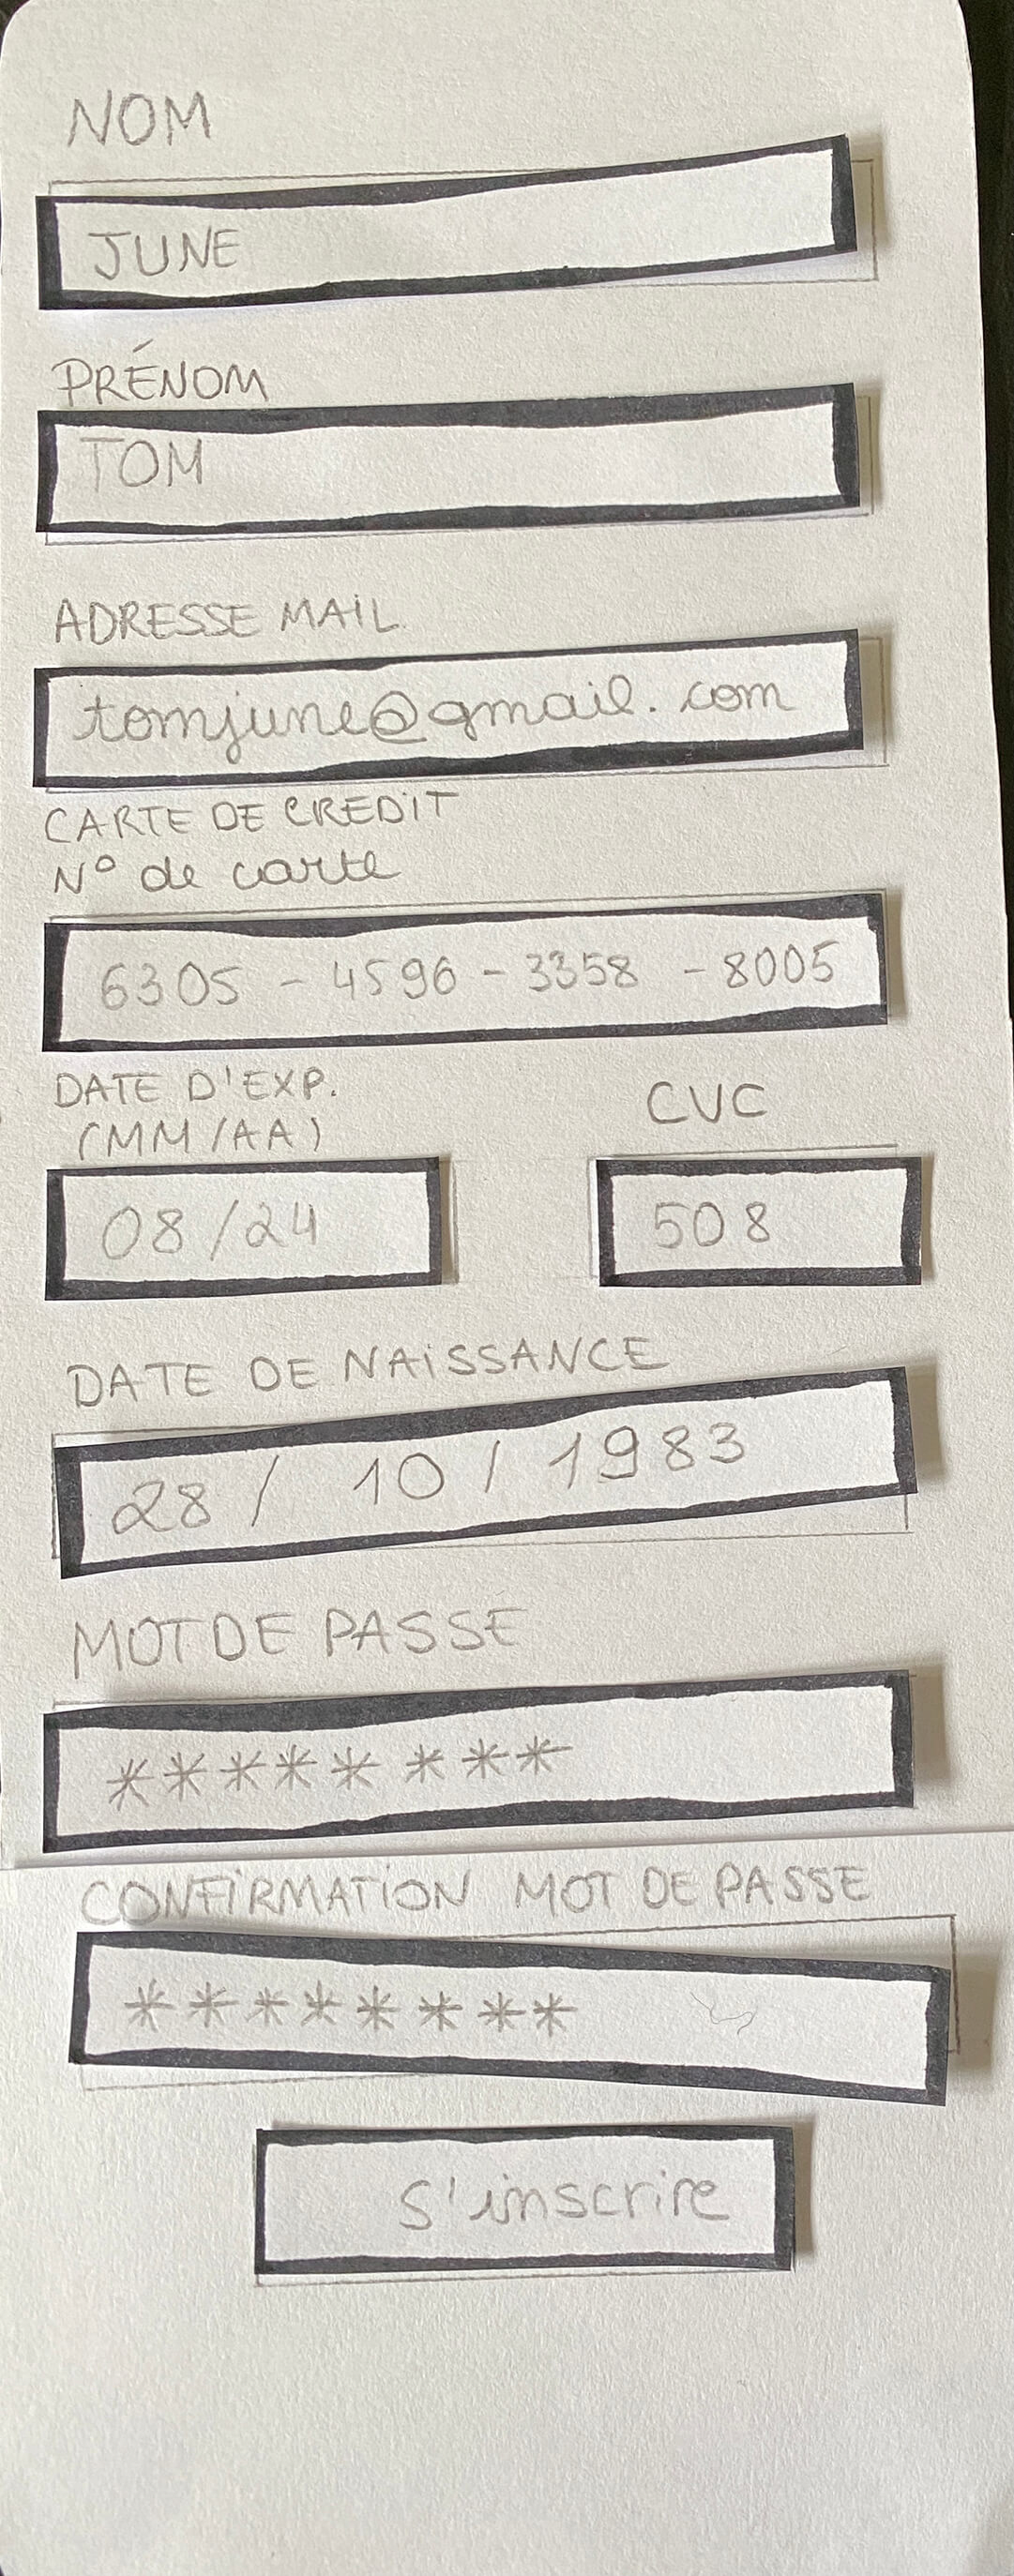 NOM
JUNE
PRÉNOM
TOM
ADRESSE MAIL.
tomjune@gmail.com
CARTE DE CREDIT
N° de carte
6305 - 4596 - 3358 - 8005
DATE D'EXP. CVC
(MM/AA)
08/24 508
DATE DE NAISSANCE
28 / 10 / 1983
MOT DE PASSE
********
CONFIRMATION MOT DE PASSE
********
S'inscrire